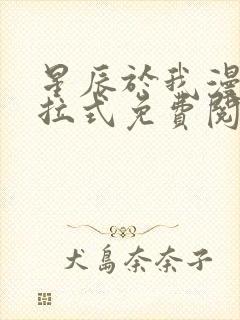 星辰於我漫
拉式免費閱
犬島奈奈子